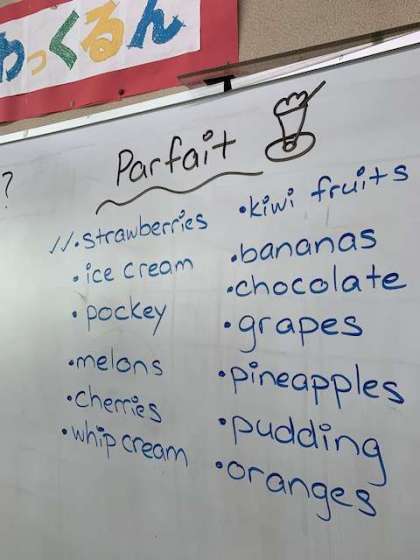 わっくるん
?
Parfait
✓✓・strawberries
・ice cream
・pockey
・melons
・cherries
・whip cream
・kiwi fruits
・bananas
・chocolate
・grapes
・pineapples
・pudding
・oranges